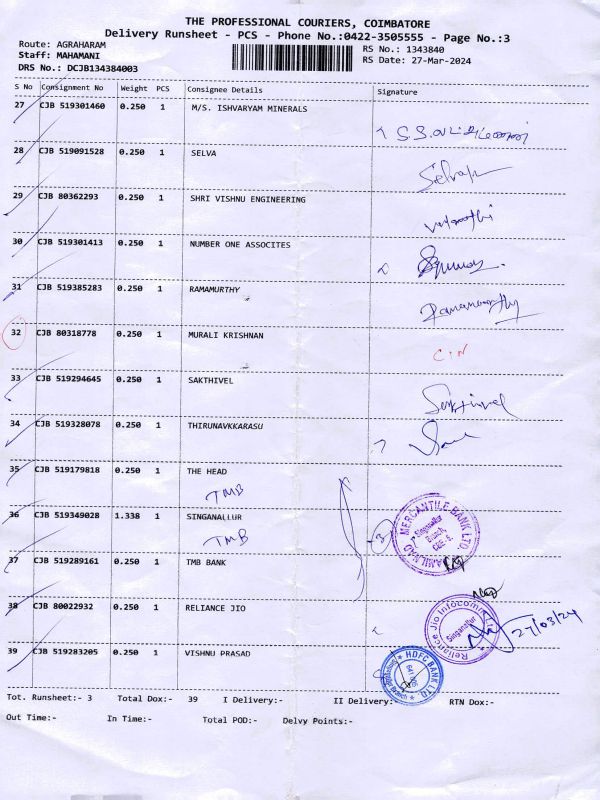 THE PROFESSIONAL COURIERS, COIMBATORE
Delivery Runsheet - PCS - Phone No.:0422-3505555 - Page No.:3
Route: AGRAHARAM
Staff: MAHAMANI
DRS No.: DCJB134384003
RS No.: 1343840
RS Date: 27-Mar-2024
S No Consignment No Weight PCS Consignee Details Signature
27 CJB 519301460 0.250 1 M/S. ISHVARYAM MINERALS
28 CJB 519091528 0.250 1 SELVA
29 CJB 80362293 0.250 1 SHRI VISHNU ENGINEERING
30 CJB 519301413 0.250 1 NUMBER ONE ASSOCITES
31 CJB 519385283 0.250 1 RAMAMURTHY Ramamoorthy
32 CJB 80318778 0.250 1 MURALI KRISHNAN C.N
33 CJB 519294645 0.250 1 SAKTHIVEL Sakthivel
34 CJB 519328078 0.250 1 THIRUNAVKKARASU
35 CJB 519179818 0.250 1 THE HEAD
TMB
36 CJB 519349028 1.338 1 SINGANALLUR
TMB
TAMILNAD MERCANTILE BANK LTD.
Singanallur
Branch,
37 CJB 519289161 0.250 1 TMB BANK
38 CJB 80022932 0.250 1 RELIANCE JIO
Reliance Jio Infocomm Ltd
Singanallur
27/03/24
39 CJB 519283205 0.250 1 VISHNU PRASAD
HDFC BANK LTD.
Tot. Runsheet:- 3 Total Dox:- 39 I Delivery:- II Delivery:- RTN Dox:-
Out Time:- In Time:- Total POD:- Delvy Points:-